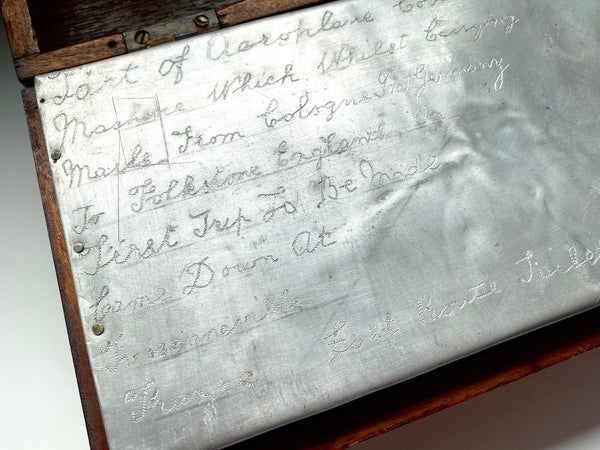 Part of Aeroplane
Machine Which Whilst Carrying
Mails From Cologne In Germany
To Folkstone England On
First Trip To Be Made
Came Down At
France Lost Route